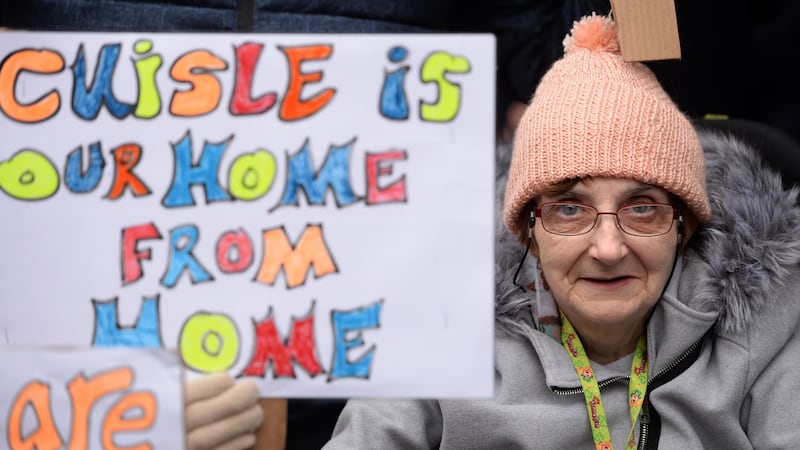 CUiSLE is
OUR HOME
FROM
HOME
are